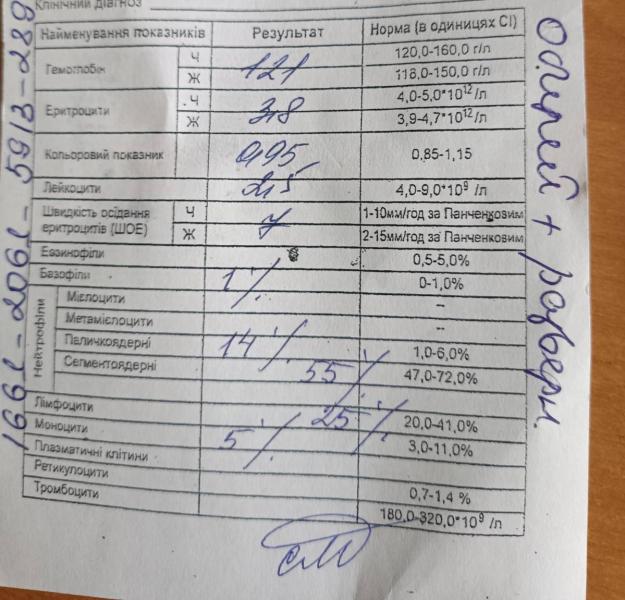 Клінічний діагноз
Найменування показників Результат Норма (в одиницях СІ)
Гемоглобін Ч 121 120,0-160,0 г/л
Ж 118,0-150,0 г/л
Еритроцити Ч 3,8 4,0-5,0*10¹²/л
Ж 3,9-4,7*10¹²/л
Кольоровий показник 0,95 0,85-1,15
Лейкоцити 2,5 4,0-9,0*10⁹ /л
Швидкість осідання еритроцитів (ШОЕ) Ч 7 1-10мм/год за Панченковим
Ж 2-15мм/год за Панченковим
Еозинофіли 0,5-5,0%
Базофіли 1% 0-1,0%
Нейтрофіли
Мієлоцити --
Метамієлоцити --
Паличкоядерні 14% 1,0-6,0%
Сегментоядерні 55% 47,0-72,0%
Лімфоцити 25% 20,0-41,0%
Моноцити 5% 3,0-11,0%
Плазматичні клітини
Ретикулоцити 0,7-1,4 %
Тромбоцити 180,0-320,0*10⁹ /л